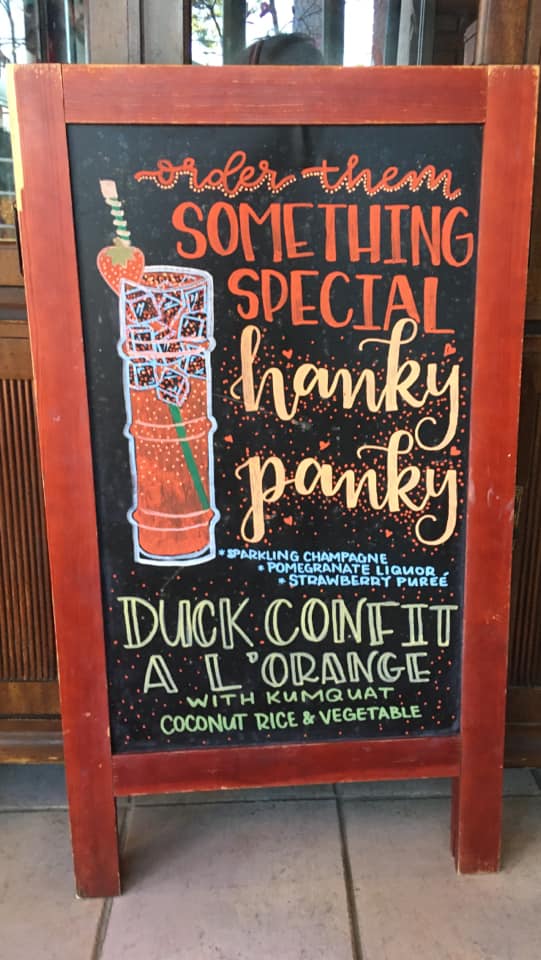 order them
SOMETHING
SPECIAL
hanky
panky
*SPARKLING CHAMPAGNE
*POMEGRANATE LIQUOR
*STRAWBERRY PURÉÉ
DUCK CONFIT
A L'ORANGE
WITH KUMQUAT
COCONUT RICE & VEGETABLE